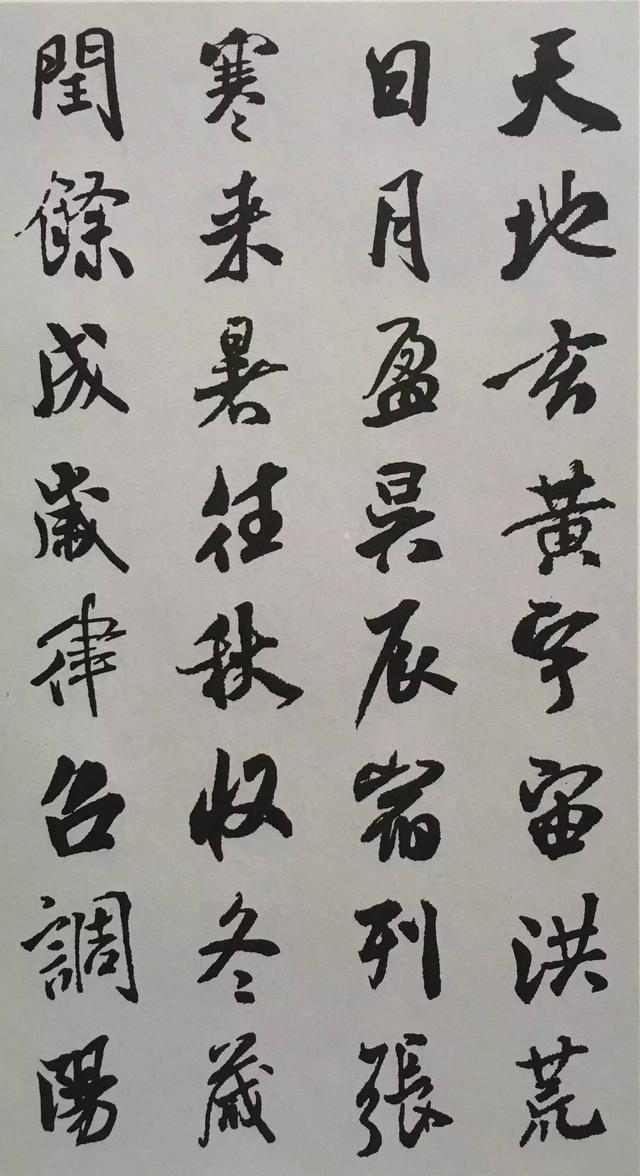 天地玄黃宇宙洪荒
日月盈昃辰宿列張
寒来暑往秋收冬藏
閏餘成歲律召調陽